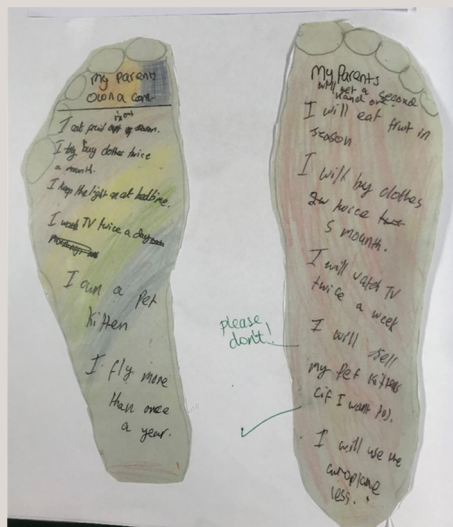 My parent
own a car
I eat fruit out of season.
I buy clothes twice
a month.
I keep the light on at bedtime.
I watch TV twice a day
I own a Pet
kitten
I fly more
than once
a year.
My Parents
will get a second
hand one
I will eat fruit in
season
I will by clothes
twice
5 mounth.
I will vatch TV
twice a week
I will sell
my pet kitten
(if I want to).
I will use the
airoplane
less.
please
don't!